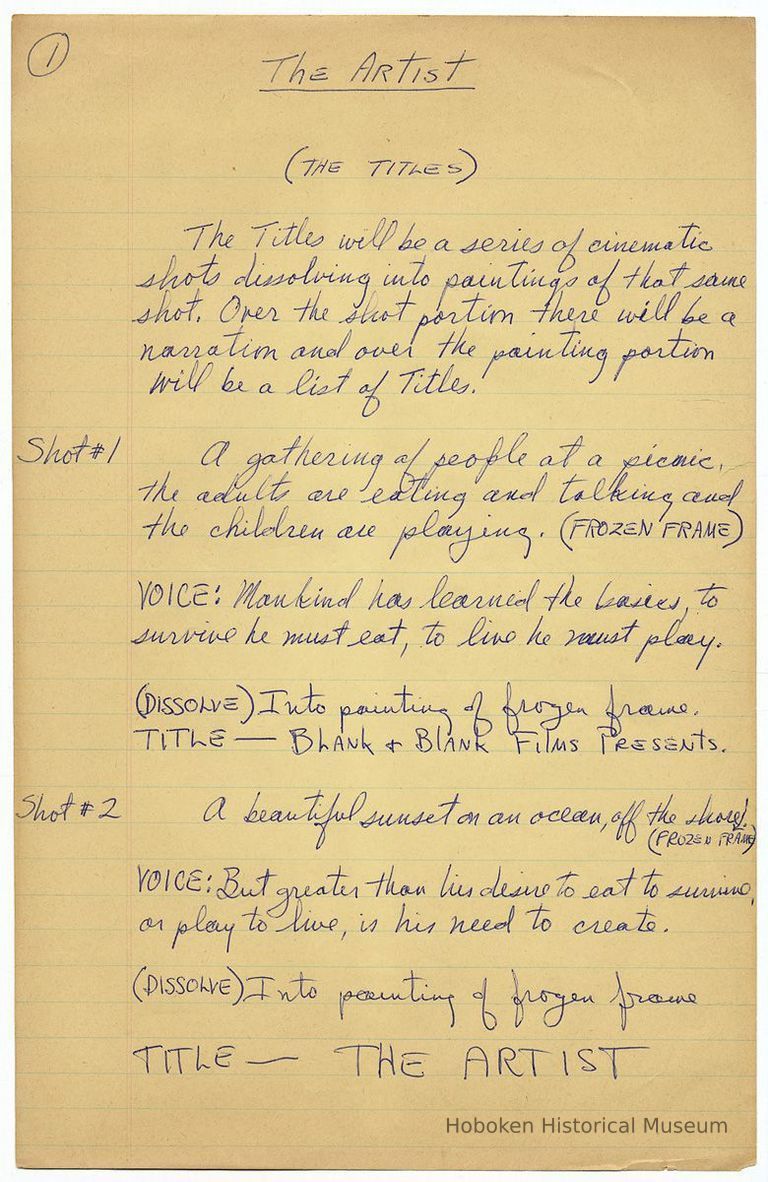 1
The Artist
(THE TITLES)
The Titles will be a series of cinematic
shots dissolving into paintings of that same
shot. Over the shot portion there will be a
narration and over the painting portion
will be a list of Titles.
Shot #1 A gathering of people at a picnic.
the adults are eating and talking and
the children are playing. (FROZEN FRAME)
VOICE: Mankind has learned the basics, to
survive he must eat, to live he must play.
(DISSOLVE) Into painting of frozen frame.
TITLE — BLANK & BLANK FILMS PRESENTS.
Shot #2 A beautiful sunset on an ocean, off the shore.
(FROZEN FRAME)
VOICE: But greater than his desire to eat to survive,
or play to live, is his need to create.
(DISSOLVE) Into painting of frozen frame
TITLE — THE ARTIST
Hoboken Historical Museum